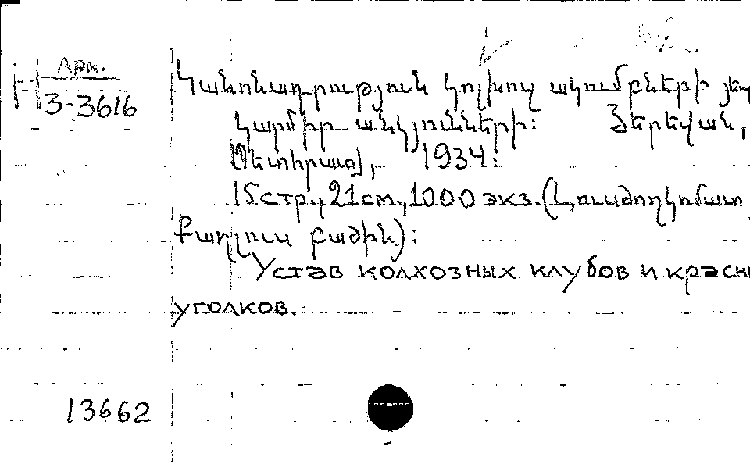 Арм.
3-3616
Կանոնադրություն կոլխոզ ակումբների յեվ
կարմիր անկյունների: Յերեվան,
Պետհրատ, 1934:
15 стр., 21 см., 1000 экз. (Լուսժողկոմատ,
Քաղլուս բաժին):
Устав колхозных клубов и красн
уголков.
13662